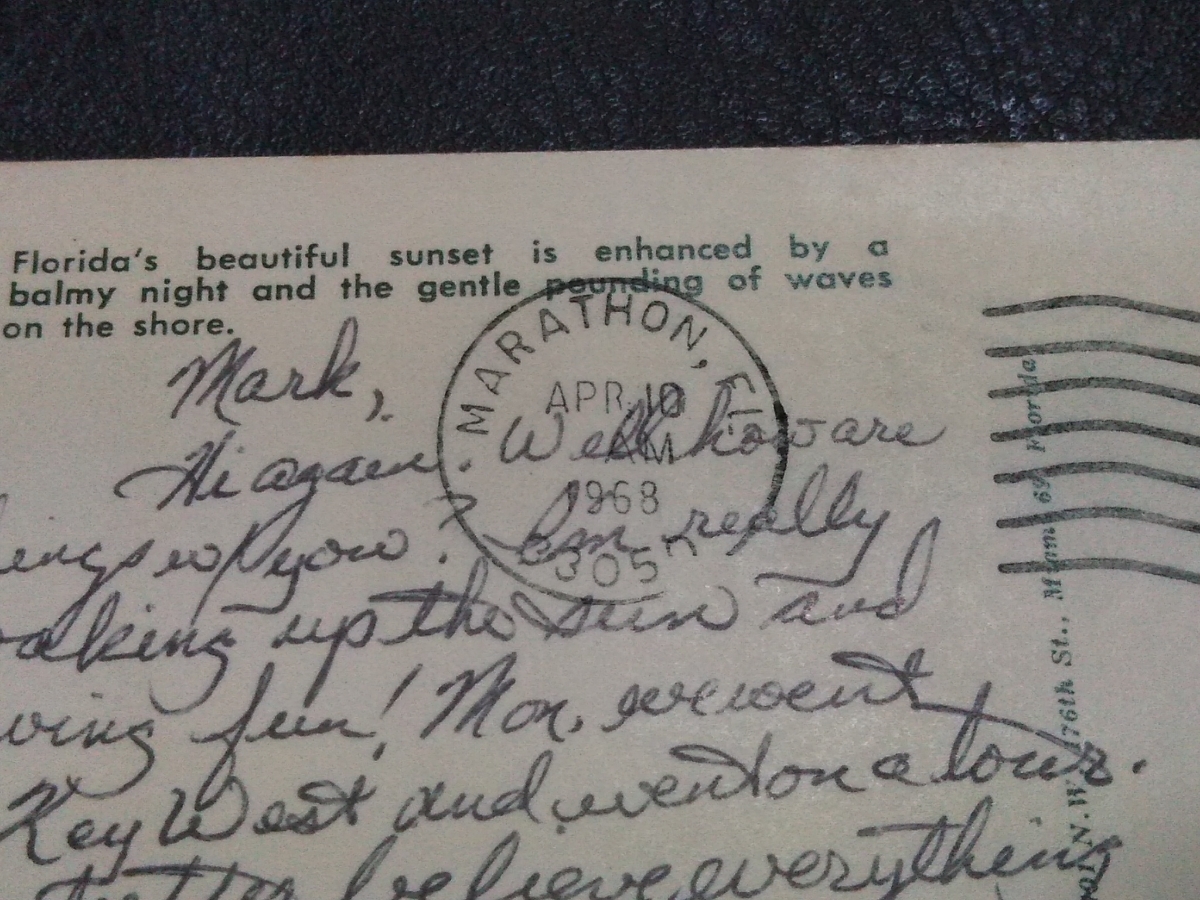 Florida's beautiful sunset is enhanced by a
balmy night and the gentle pounding of waves
on the shore.
MARATHON, FL
APR 10
AM
1968
3305
Mark,
Hi again. Well how are
you? Im really
up the sun and
fun! Mon. we went
Key West and went on a tour.
believe everything
N.W. 176th St., Miami 69 Florida